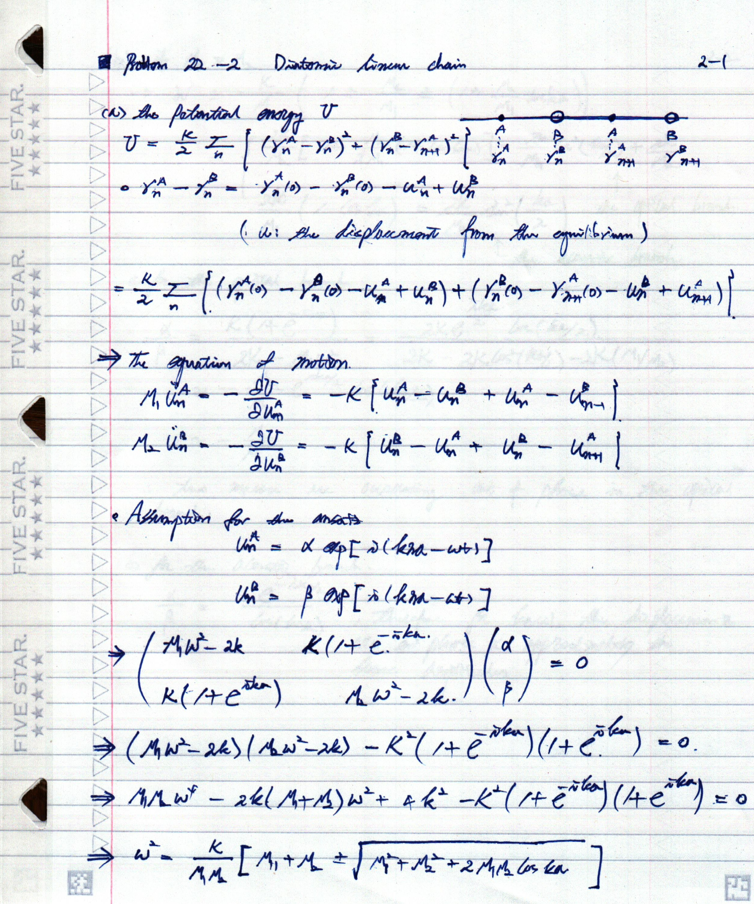 Problem 22-2 Diatomic linear chain 2-1
(a) the potential energy U
A B A B
U = K/2 Σ_n [ (r_n^A - r_n^B)^2 + (r_n^B - r_{n+1}^A)^2 ]
r_n^A r_n^B r_{n+1}^A r_{n+1}^B
• r_n^A - r_n^B = r_n^A(0) - r_n^B(0) - u_n^A + u_n^B
( u: the displacement from the equilibrium )
= K/2 Σ_n [ (r_n^A(0) - r_n^B(0) - u_n^A + u_n^B) + (r_n^B(0) - r_{n+1}^A(0) - u_n^B + u_{n+1}^A) ]
⇒ the equation of motion.
M_1 ü_n^A = - ∂U/∂u_n^A = -K [ u_n^A - u_n^B + u_n^A - u_{n-1}^B ]
M_2 ü_n^B = - ∂U/∂u_n^B = -K [ u_n^B - u_n^A + u_n^B - u_{n+1}^A ]
• Assumption for the
u_n^A = α exp[ i(kna - ωt) ]
u_n^B = β exp[ i(kna - ωt) ]
⇒ ( M_1ω^2 - 2k K(1 + e^{-ika} ) ( α ) = 0
( K(1 + e^{ika}) M_2ω^2 - 2k. ) ( β )
⇒ (M_1ω^2 - 2k)(M_2ω^2 - 2k) - K^2(1 + e^{-ika})(1 + e^{ika}) = 0.
⇒ M_1M_2ω^4 - 2k(M_1 + M_2)ω^2 + 4k^2 - K^2(1 + e^{-ika})(1 + e^{ika}) = 0
⇒ ω^2 = K/(M_1M_2) [ M_1 + M_2 ± √(M_1^2 + M_2^2 + 2M_1M_2 cos ka) ]
FIVE STAR.
FIVE STAR.
FIVE STAR.
FIVE STAR.